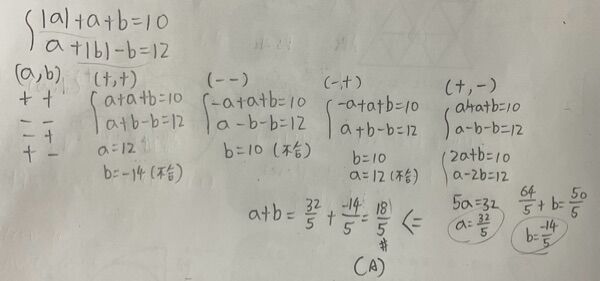 |a|+a+b=10
a+|b|-b=12
(a,b)
+ +
- -
- +
+ -
(+,+)
a+a+b=10
a+b-b=12
a=12
b=-14(不合)
(--)
-a+a+b=10
a-b-b=12
b=10(不合)
(-,+)
-a+a+b=10
a+b-b=12
b=10
a=12(不合)
(+,-)
a+a+b=10
a-b-b=12
2a+b=10
a-2b=12
5a=32
a=32/5
64/5+b=50/5
b=-14/5
a+b=32/5+-14/5=18/5 <=
#
(A)